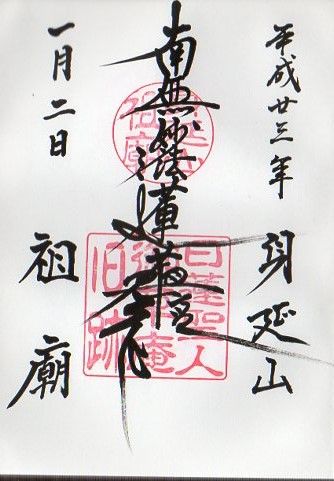 平成廿三年
身延山
南無妙法蓮華経
日蓮聖人
御草庵
旧跡
一月二日
祖廟